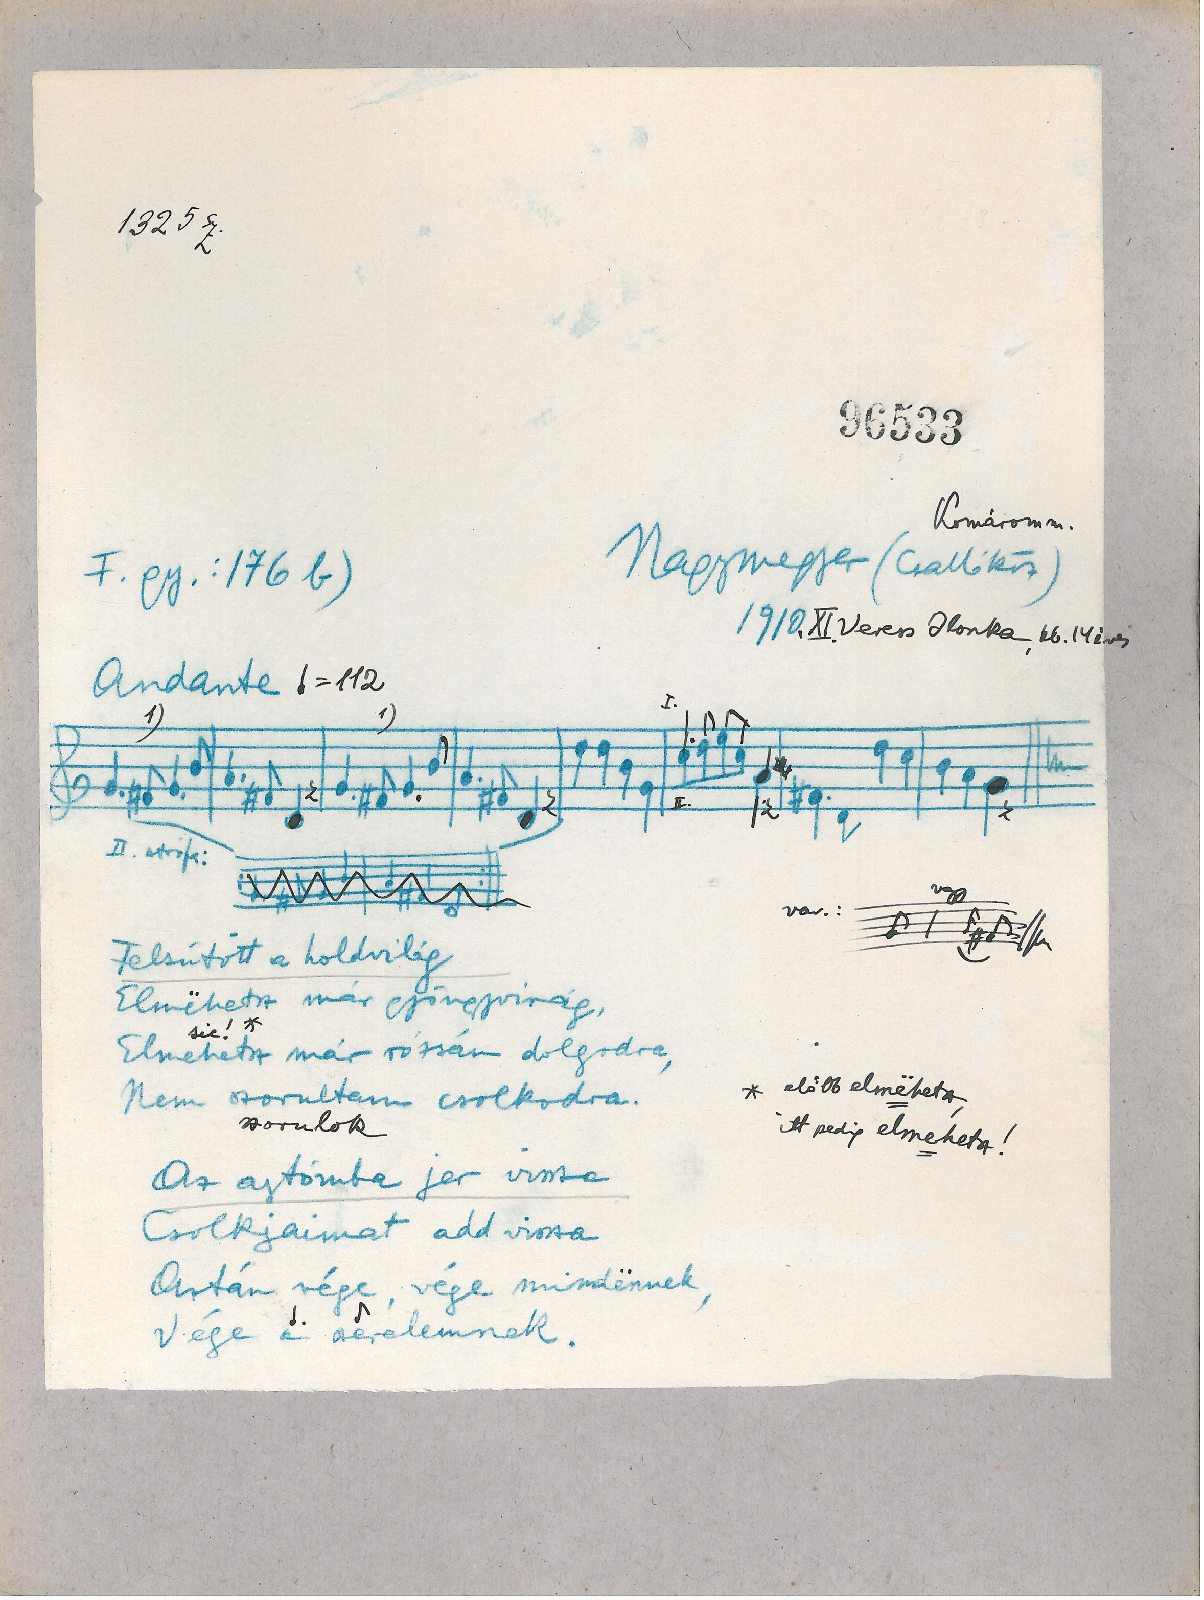 1325 sz.
96533
Komárom m.
F. gy.: 176 b)
Nagymegyer (Csallóköz)
1910. XI. Veress Ilonka, kb. 14 éves
Andante ♩=112
1)
1)
I.
II.
II. strófa:
vagy
var.:
Felsütött a holdvilág
Elmëhetsz már gyöngyvirág,
sic! *
Elmehetsz már rózsám dolgodra,
Nem szorultam csolkodra.
szorulok
* előbb elmëhetsz,
itt pedig elmehetsz!
Az ajtómba jer vissza
Csolkjaimat add vissza
Osztán vége, vége mindënnek,
Vége a szerelemnek.